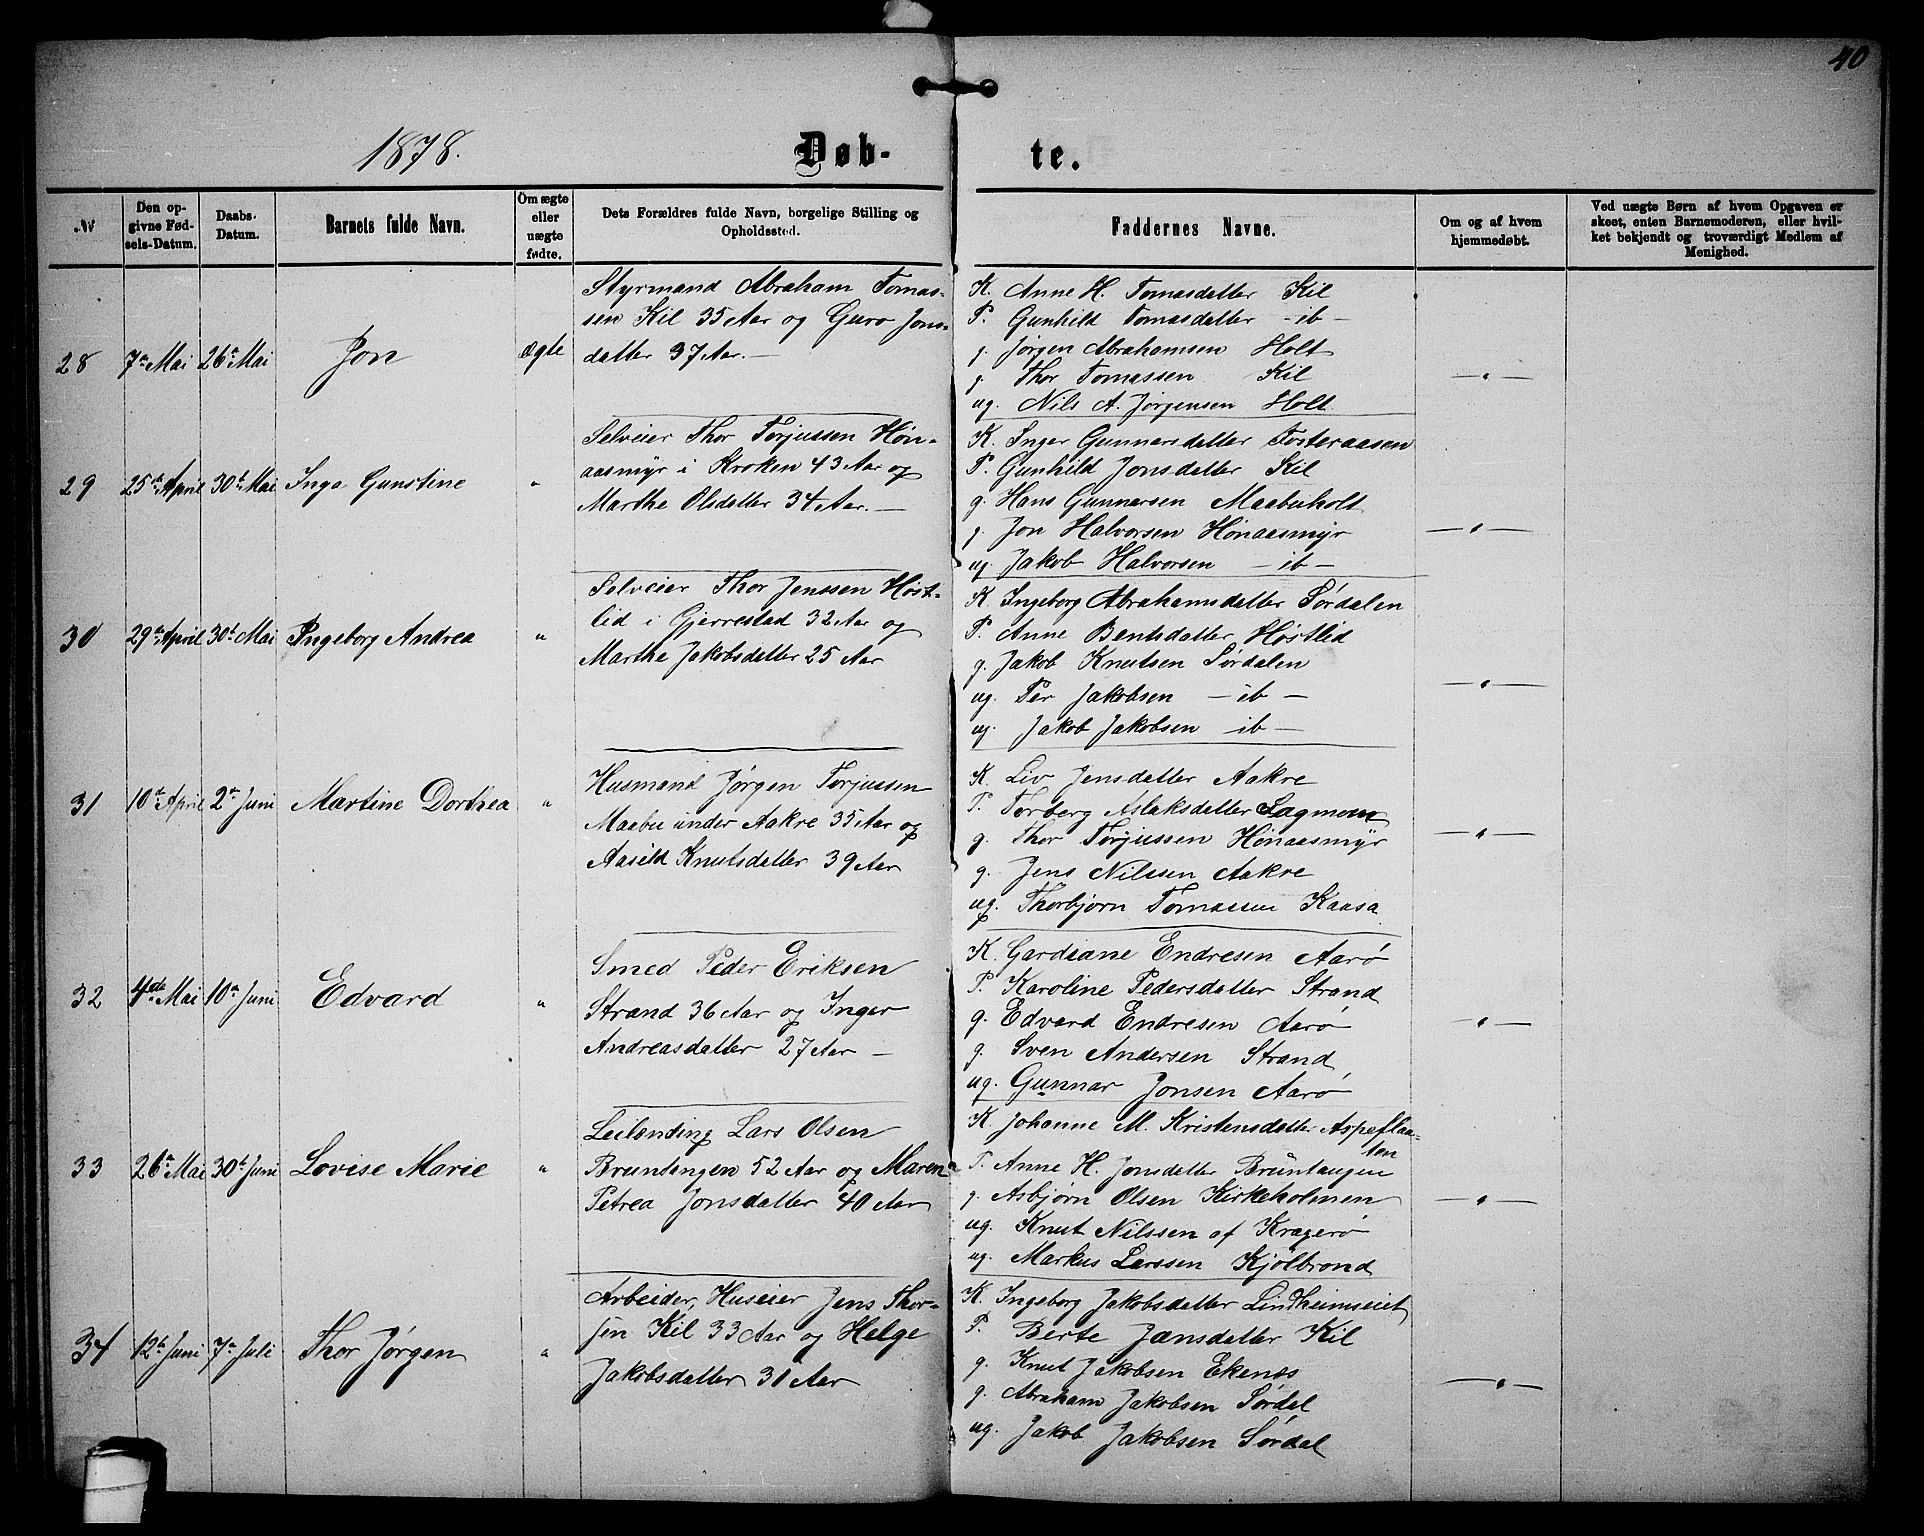 40
1878.
Døb-
te.
№
Den op-
givne Fød-
sels-Datum.
Daabs-
Datum.
Barnets fulde Navn.
Om ægte
eller
uægte
fødte.
Dets Forældres fulde Navn, borgelige Stilling og
Opholdssted.
Faddernes Navne.
Om og af hvem
hjemmedøbt.
Ved uægte Børn af hvem Opgaven er
skeet, enten Barnemoderen, eller hvil-
ket bekjendt og troværdigt Medlem af
Menighed.
28 7de Mai 26de Mai Jon ægte
Styrmand Abraham Tomas-
sen Kil 35 Aar og Guro Jons-
datter 37 Aar. —
K. Anne H. Tomasdatter Kil
P. Gunhild Tomasdatter - ib -
g. Jørgen Abrahamsen Holt
g. Thor Tomassen Kil
ug. Nils A. Jørgensen Holt
— " —
29 25de April 30te Mai Inga Gunstine "
Selveier Thor Torjussen Høn-
aasmyr i Kroken 43 Aar og
Marthe Olsdatter 34 Aar. —
K. Inger Gunnarsdatter Tosteraasen
P. Gunhild Jonsdatter Kil
g. Hans Gunnarsen Maabuholt
g. Jon Halvorsen Hønaasmyr
ug. Jakob Halvorsen - ib -
— " —
30 29de April 30te Mai Ingeborg Andrea "
Selveier Thor Jenssen Høst-
lid i Gjerrestad 32 Aar og
Marthe Jakobsdatter 25 Aar
K. Ingeborg Abrahamsdatter Sørdalen
P. Anne Bentsdatter Høstlid
g. Jakob Knutsen Sørdalen
ug. Per Jakobsen - ib -
ug. Jakob Jakobsen ib -
— " —
31 10de April 2den Juni Martine Dorthea "
Husmand Jørgen Torjussen
Maabu under Aakre 35 Aar og
Aasild Knutsdatter 39 Aar
K. Liv Jensdatter Aakre
P. Torberg Aslaksdatter Lagmoen
g. Thor Torjussen Hønaasmyr
g. Jens Nilssen Aakre
ug. Thorbjørn Tomassen Kaasa
— " —
32 4de Mai 10de Juni Edvard "
Smed Peder Eriksen
Strand 36 Aar og Inger
Andreasdatter 27 Aar —
K. Gardiane Endresen Aarø
P. Karoline Pedersdatter Strand
g. Edvard Endresen Aarø
g. Sven Andersen Strand
ug. Gunnar Jonsen Aarø
— " —
33 26de Mai 30te Juni Lovise Marie "
Leilending Lars Olsen
Bruntangen 52 Aar og Maren
Petrea Jonsdatter 40 Aar
K. Johanne M. Kristensdatter Aspeflaa-
ten
P. Anne H. Jonsdatter Bruntangen
g. Asbjørn Olsen Kirkeholmen
ug. Knut Nilssen af Kragerø
ug. Markus Larssen Kjølbrønd
— " —
34 12te Juni 7de Juli Thor Jørgen "
Arbeider, Huseier Jens Thor-
sen Kil 33 Aar og Helge
Jakobsdatter 31 Aar
K. Ingeborg Jakobsdatter Lindheimseiet
P. Berte Jensdatter Kil
g. Knut Jakobsen Ekenæs
g. Abraham Jakobsen Sørdal
ug. Jakob Jakobsen Sørdal
— " —